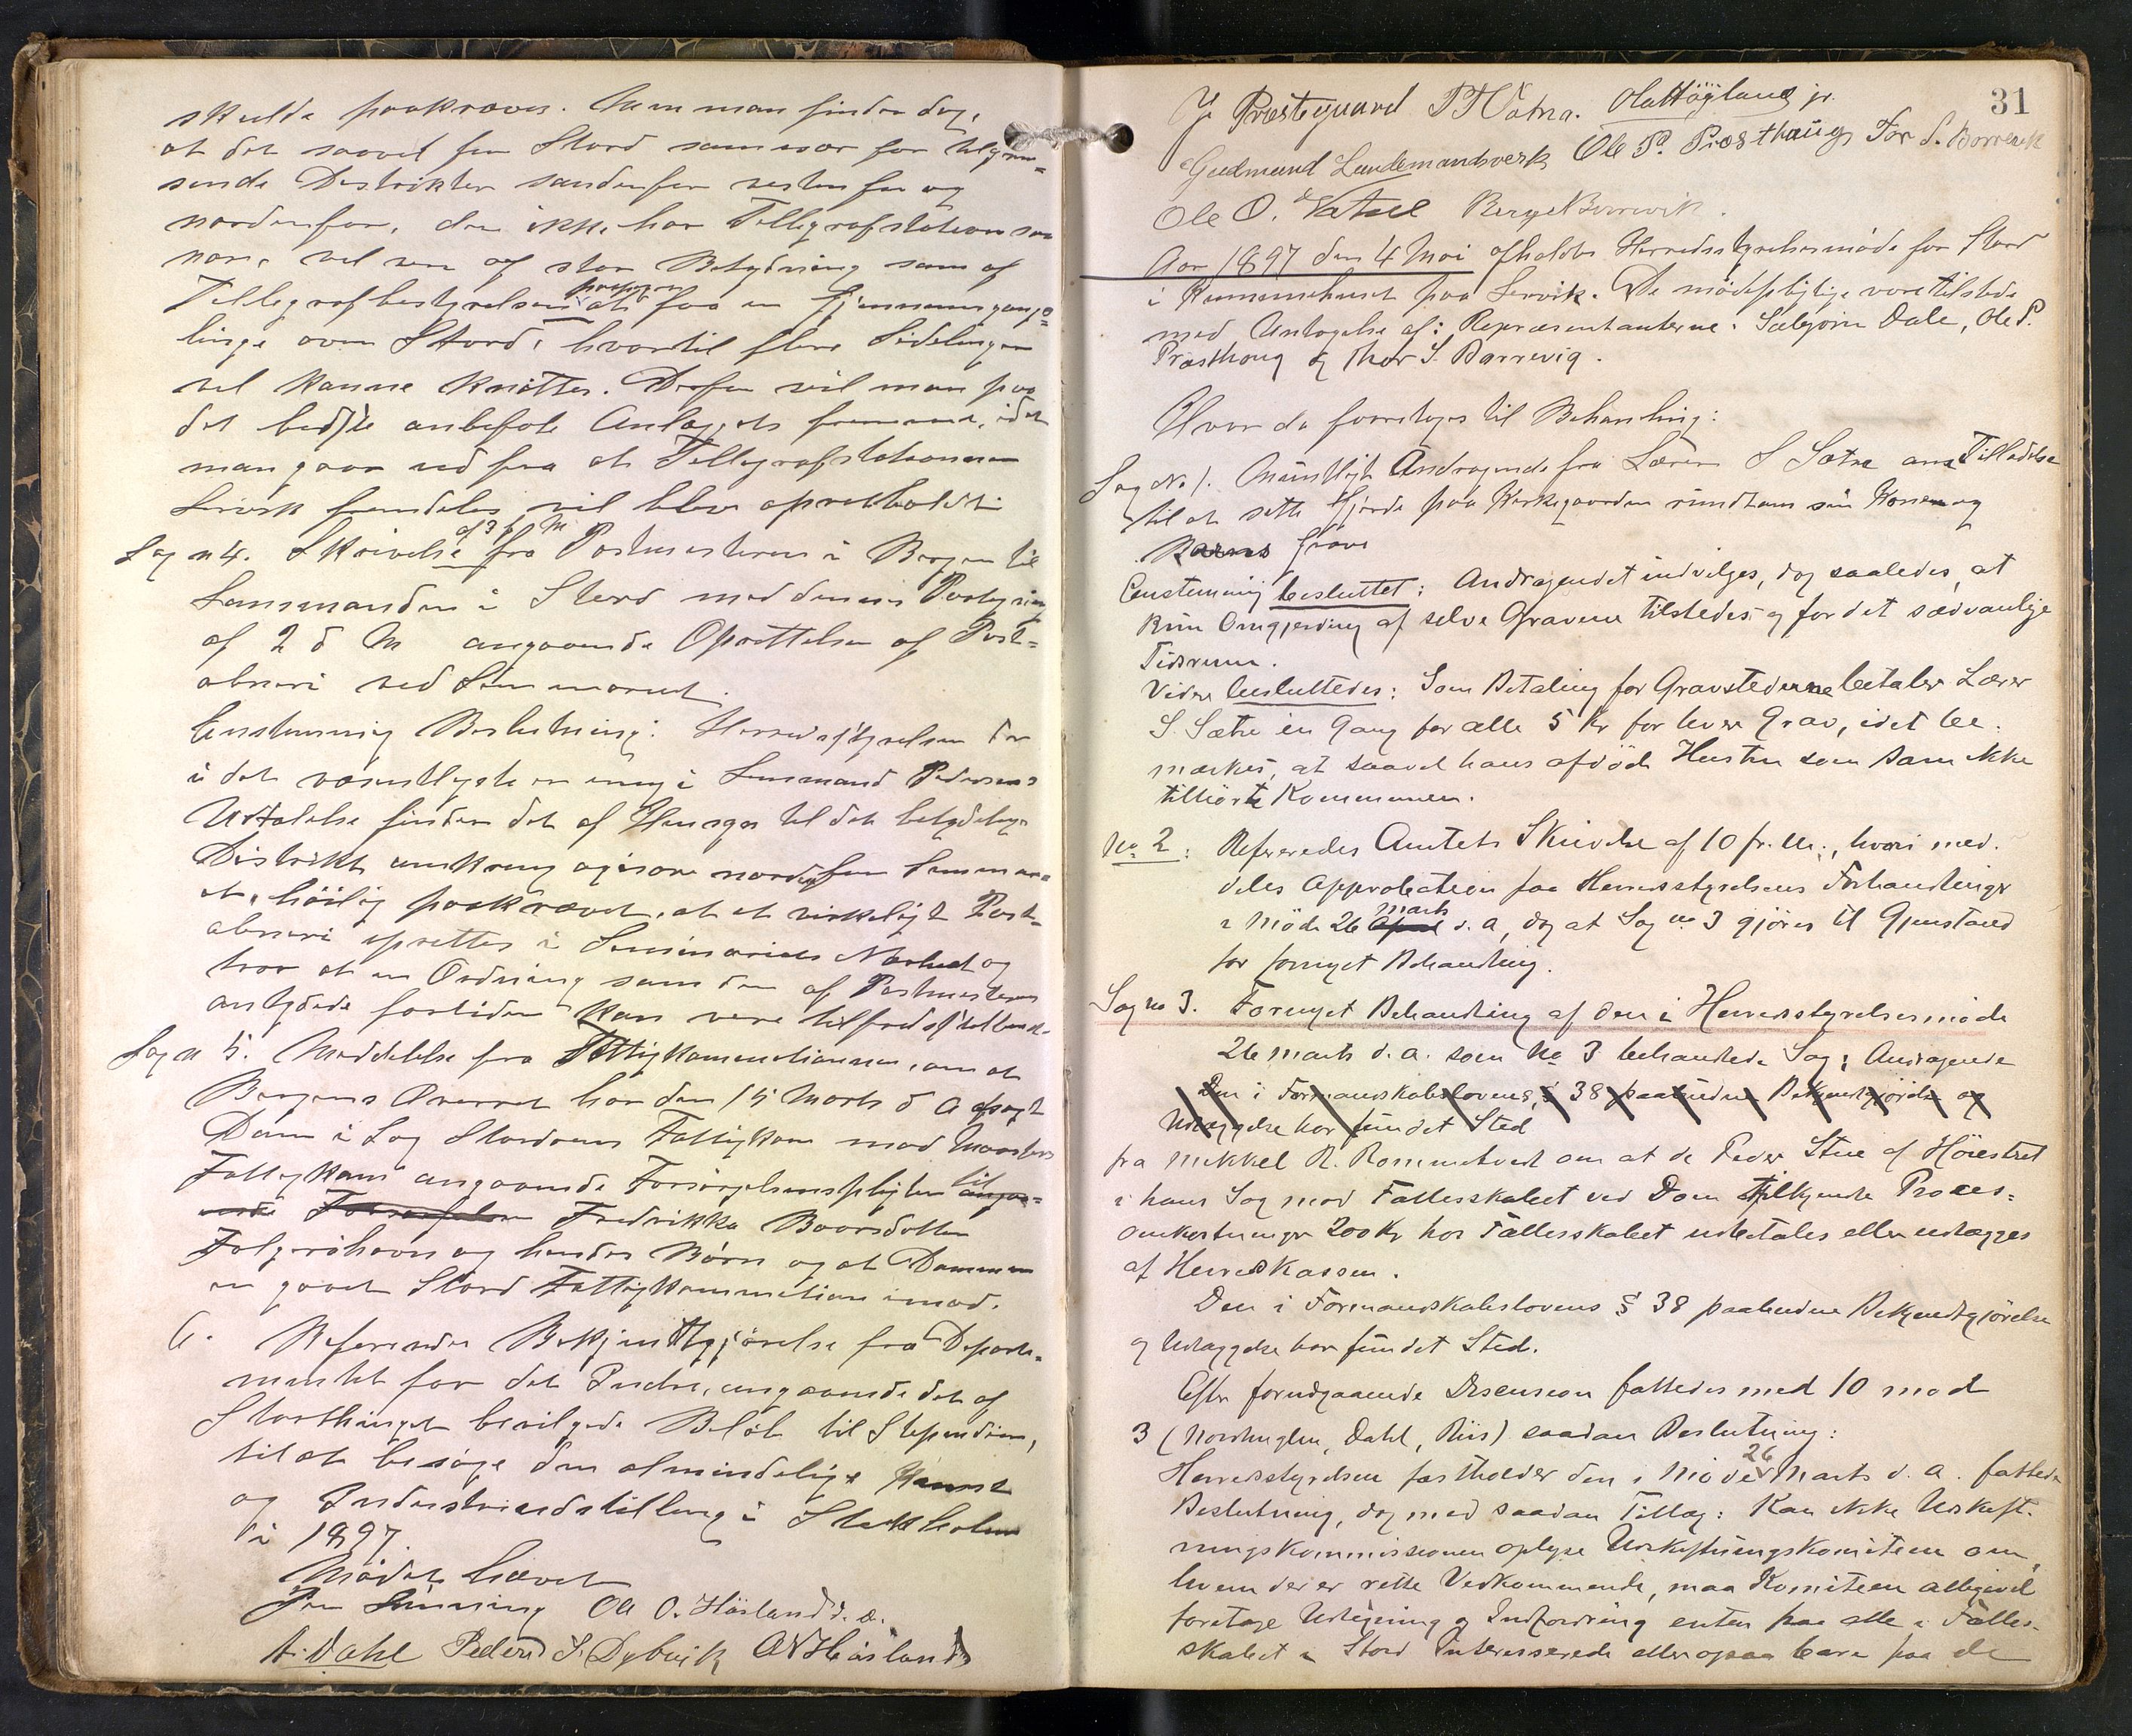 skulde paakræves. Men man finder dog,
at det saavel for Stord som især for tilgræn=
sende Distrikter søndenfor vestenfor og
nordenfor, der ikke har Tellegrafstation
vel være af stor Betydning som af
Tellegrafbestyrelsen at faa en Gjennemgangs=
linje over Stord, hvortil flere Sidelinjer
vel kunne knøttes. Derfor vil man paa
det bedste anbefale Anlæggets fremme, idet
man gaar ud fra at Tellegrafstationen
Lervik fremdeles vil blive opretholdt.
Sag n 4. Skrivelse af 3 f M fra Postmesteren i Bergen til
Lensmanden i Stord med dennes Paategning
af 2 d M angaaende Oprettelsen af Post=
abneri ved Seminariet.
Enstemmig Beslutning: Herredsstyrelsen der
i det væsentligste er enig i Lensmand Pedersens
Udtalelse finder det af Hensyn til det betydelige
Distrikt omkring og især nordenfor Seminari=
et, høilig paakrævet, at et virkeligt Post=
abneri oprettes i Seminariets Nærhed og
tror at en Ordning som den af Postmesteren
antydede fortiden kan være tilfredsstillende.
Sag n 5. Meddelelse fra Fattigkommissionen, om at
Bergens Overret har den 15 Marts d A afsagt
Dom i Sag Stordøens Fattigkom mod Mosters
Fattigkom angaaende Forsørgelsespligten til angaa=
ende Forsørgelsen Fredrikke Baarsdatter
Folgerøhavn og hendes Børn og at Dommen
er gaaet Stord Fattigkommission imod.
6. Refereredes Bekjendtgjørelse fra Departe=
mentet for det Indre, angaaende det af
Storthinget bevilgede Beløb til Stipendier,
til at besøge den almindelige Kunst
og Industriudstilling i Stockholm
i 1897.
Mødet hævet
Ole O. Høiland d. æ.
A. Dahl Peder S. Dybvik
31
J Prestegaard P T Vatna. Ola Høgland jr.
Gudmund Lundemandsverk Ole P. Præsthaug Tor S. Borrevik
Ole O. Vatne Berge Borrevik.
Aar 1897 den 4 Mai afholdtes Herredsstyrelsesmøde for Stord
i Kommunehuset paa Lervik. De mødepligtige vare tilstede
med Untagelse af: Repræsentanterne: Sæbjørn Dale, Ole P.
Præsthaug og Thor S. Barrevig.
Hvor da foretoges til Behandling:
Sag No 1. Mundtligt Andragende fra Lærer S Sætre om Tilladelse
til at sette Gjærde paa Kirkegaarden rundtom sin Kones og
Barns Grave
Enstemmig besluttet: Andragendet indvilges, dog saaledes, at
kun Omgjerding af selve Gravene tilstedes og for det sædvanlige
Tidsrum.
Videre besluttedes: Som Betaling for Gravstederne betaler Lærer
S. Sætre en Gang for alle 5 Kr for hver Grav, idet be=
mærkes, at saavel hans afdøde Hustru som Barn ikke
tilhørte Kommunen.
No 2: Refereredes Amtets Skrivelse af 10 f. M., hvori med=
deles Approbation paa Herredsstyrelsens Forhandlinger
i Møde 26 April marts d. a, dog at Sag no 3 gjøres til Gjenstand
for fornyet Behandling.
Sag no 3. Fornyet Behandling af den i Herredsstyrelsesmøde
26 marts d. a. som No 3 behandlede Sag: Andragende
Den i Formandskabslovens § 38 paabudne Bekjendtgjørelse og
Udlæggelse har fundet Sted
fra Mikkel R. Rommetvedt om at de Peder Stue af Høiestret
i hans Sag mod Fællesskabet ved Dom tilkjendte Proces=
omkostninger 200 Kr hos Fællesskabet udbetales eller udlægges
af Herredskassen.
Den i Formandskabslovens § 38 paabudne Bekjendtgjørelse
og Udlæggelse har fundet Sted.
Efter forudgaaende Discusion fattedes med 10 mod
3 (Nordhuglen, Dahl, Riis) saadan Beslutning:
Herredsstyrelsen fastholder den i Møde 26 Marts d. a. fattede
Beslutning, dog med saadan Tillæg: Kan ikke Udskift=
ningskommissionen oplyse Udskiftningskomiteen om,
hvem der er rette Vedkommende, maa Komiteen alligevel
foretage Udligning og Indfordring enten paa alle i Fælles=
skabet i Stord Interesserede eller ogsaa bare paa de